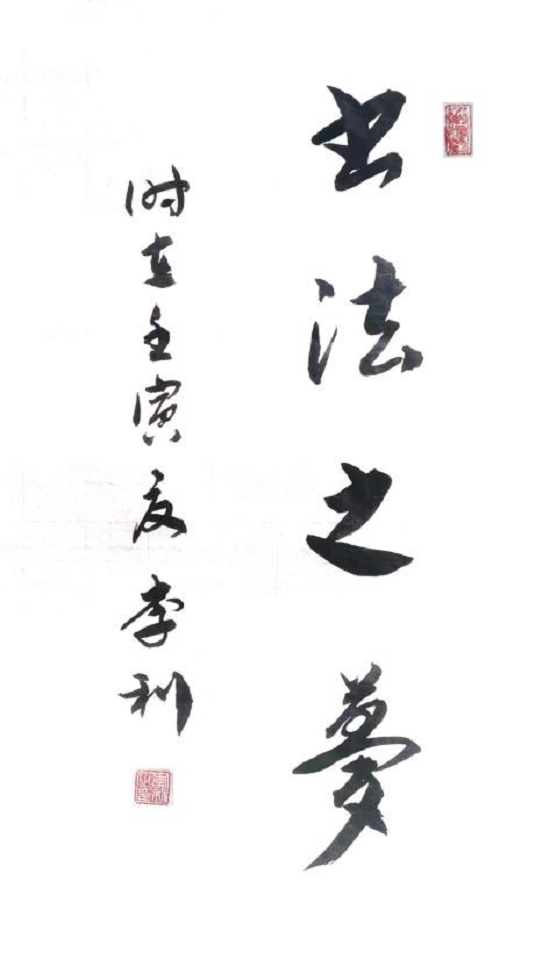 书法之夢
时在壬寅夏李利